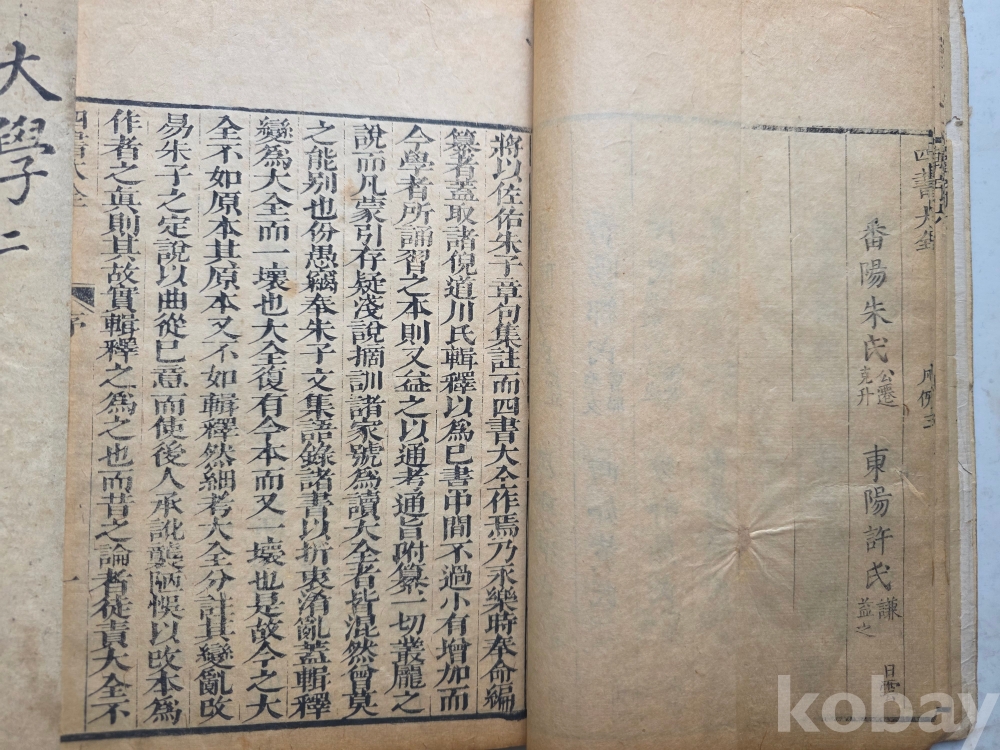 四書大全
凡例 三
番陽朱氏 公遷 克升 東陽許氏 謙 益之
將以佐佑朱子章句集註而四書大全作焉乃永樂時奉命編
纂者蓋取諸倪道川氏輯釋以為已書中間不過小有增加而
今學者所誦習之本則又益之以通考通旨附纂一切叢厖之
說而凡蒙引存疑淺說摘訓諸家號為讀大全者皆混然曾莫
之能别也份愚竊奉朱子文集語錄諸書以折衷淆亂蓋輯釋
變為大全而一壞也大全復有今本而又一壞也是故今之大
全不如原本其原本又不如輯釋然細考大全分註其變亂改
易朱子之定說以曲從已意而使後人承訛襲陋悞以改本為
作者之眞則其故實輯釋之為之也而昔之論者徒責大全不
四書大全
序
一
大學 二
kobay